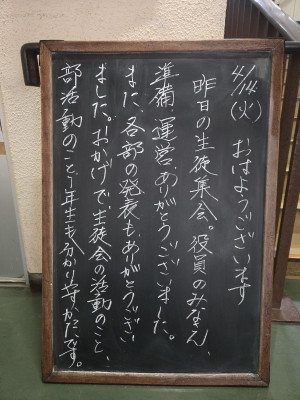 4/14(火) おはようございます
昨日の生徒集会。役員のみなさん、
準備、運営ありがとうございました。
また、各部の発表もありがとうござい
ました。おかげで、生徒会の活動のこと、
部活動のこと、1年生も分かりやすかたです。